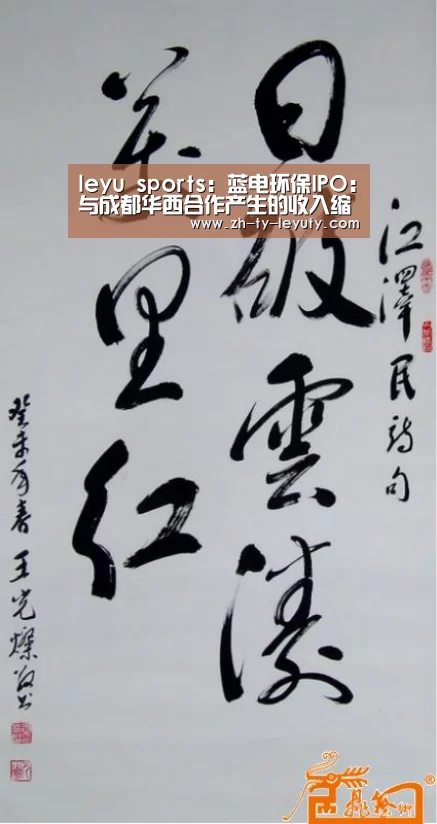 日破雲濤
萬里红
江澤民詩句
癸未年春王光燦敬书
leyu sports：蓝电环保IPO：
与成都华西合作产生的收入缩
www.zh-ty-leyuty.com